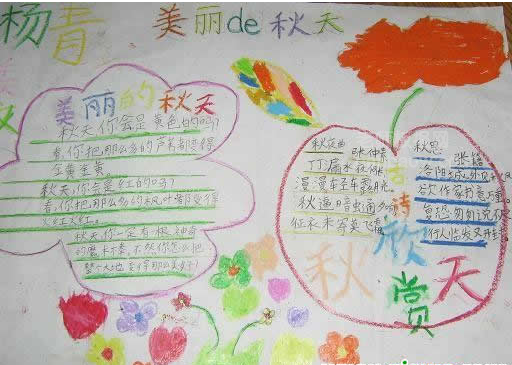 杨青
美丽de秋天
美丽的秋天
秋天,你会是黄色的吗?
看,你把那么多的芦苇都变得
金黄金黄。
秋天,你会是红的吗?
看,你把那么多的枫叶都变得
火红火红。
秋天,你一定有根神奇
的魔术棒,不然你怎么把
整个大地变得那么美好
秋夜曲 张仲素
丁丁漏水夜何长
漫漫轻云露月光
秋逼暗虫通夕
征衣未寄莫飞霜
古诗
欣赏
秋天
秋思
张籍
洛阳城里见秋风
欲作家书意万重。
复恐匆匆说不尽
行人临发又开封